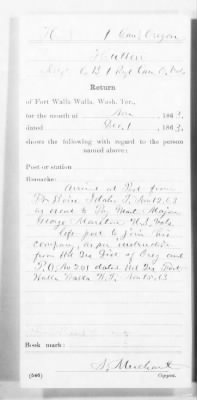 H 1 Cav. Oregon
Hutton
Capt. Co B, 1 Reg't Cav. O. Vols
Return
of Fort Walla Walla, Wash. Ter.,
for the month of Nov, 1863
dated Dec. 1, 1863.
shows the following with regard to the person
named above:
Post or station
Remarks:
Arrived at Post from
Ft Boise Idaho T. Nov 12, 63
as escort to Pay Mast. Major
George U.S. Vols.
left post to join his
company, as per instruction
from Hd Qrs Dist of Oreg and
P.O. No 201 dated Hd Qrs Fort
Walla Walla W.T. Nov 15, 63
Book mark:
Merchant
(546) Copyist.